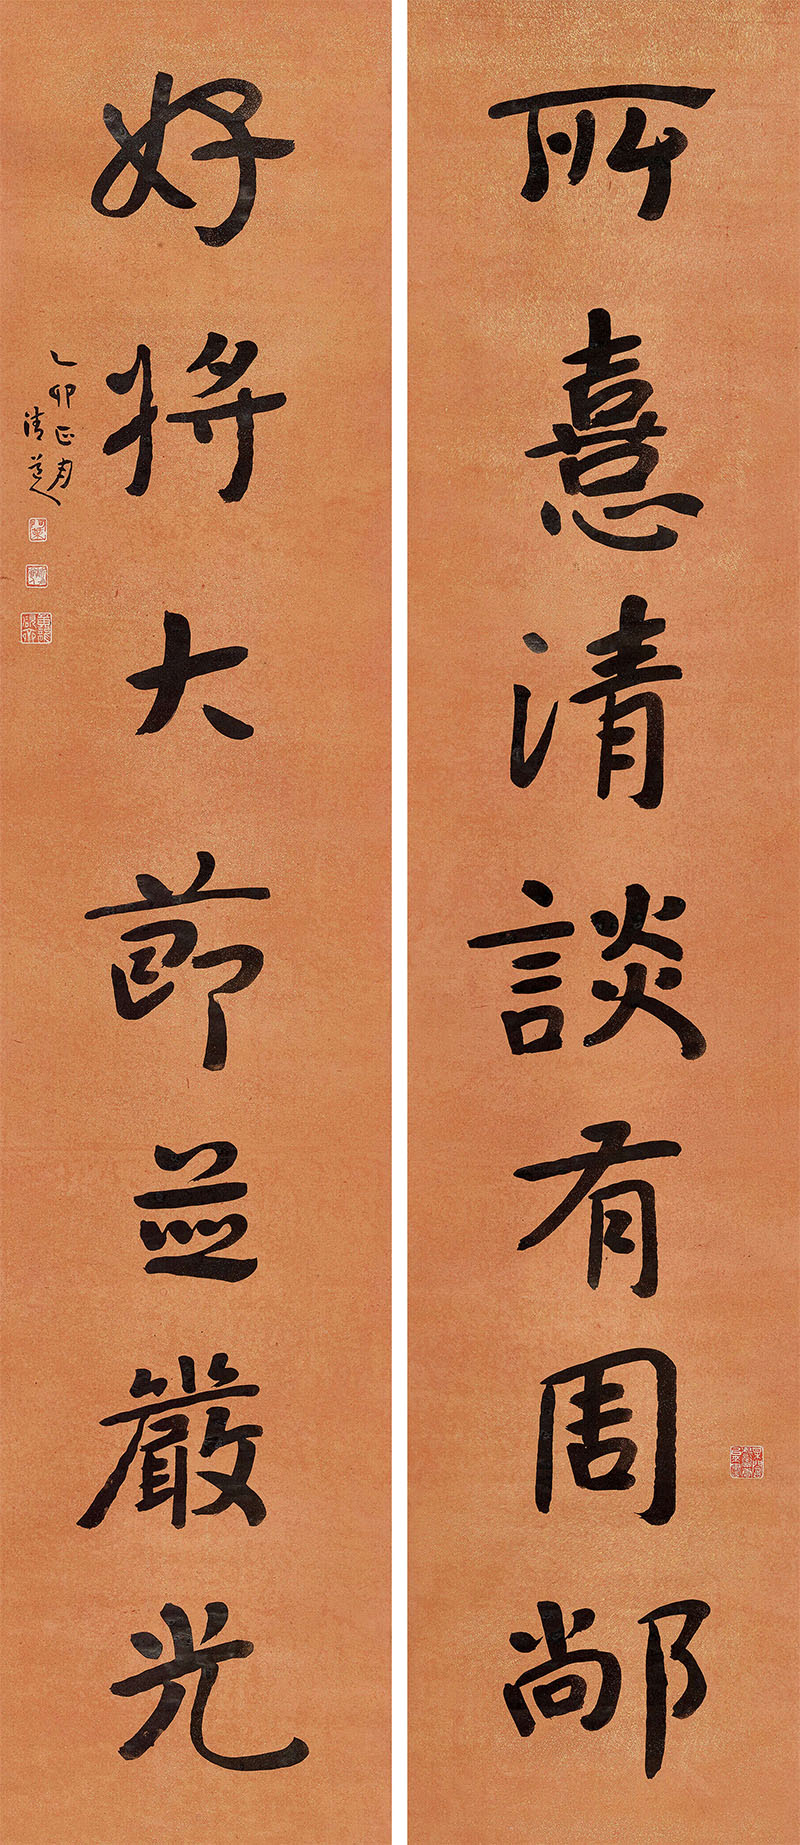 所憙清談有周䣊
好將大莭並嚴光
乙卯正月
清道人